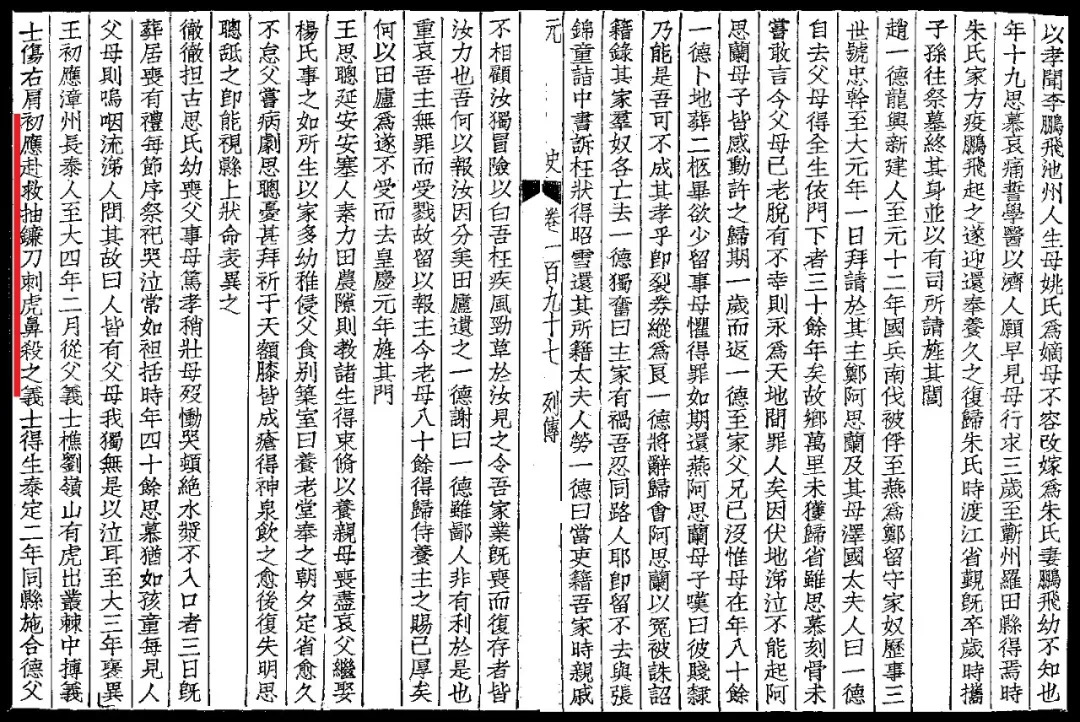 以孝聞李鵬飛池州人生母姚氏爲嫡母不容改嫁爲朱氏妻鵬飛幼不知也
年十九思慕哀痛誓學醫以濟人願早見母行求三歲至蘄州羅田縣得焉時
朱氏家方疫鵬飛起之遂迎還奉養久之復歸朱氏時渡江省覲旣卒歲時攜
子孫往祭墓終其身並以有司所請旌其閭
趙一德龍興新建人至元十二年國兵南伐被俘至燕爲鄭留守家奴歷事三
世號忠幹至大元年一日拜請於其主鄭阿思蘭及其母澤國太夫人曰一德
自去父母得全生依門下者三十餘年矣故鄉萬里未獲歸省雖思慕刻骨未
嘗敢言今父母已老脫有不幸則永爲天地間罪人矣因伏地涕泣不能起阿
思蘭母子皆感動許之歸期一歲而返一德至家父兄已沒惟母在年八十餘
一德卜地葬二柩畢欲少留事母懼得罪如期還燕阿思蘭母子嘆曰彼賤隸
乃能是吾可不成其孝乎即裂券縱爲良一德將辭歸會阿思蘭以冤被誅詔
籍錄其家羣奴各亡去一德獨奮曰主家有禍吾忍同路人耶即留不去與張
錦童詣中書訴枉狀得昭雪還其所籍太夫人勞一德曰當吏籍吾家時親戚
元史 卷一百九十七 列傳
不相顧汝獨冒險以白吾枉疾風勁草於汝見之令吾家業旣喪而復存者皆
汝力也吾何以報汝因分美田廬遺之一德謝曰一德雖鄙人非有利於是也
重哀吾主無罪而受戮故留以報主今老母八十餘得歸侍養主之賜已厚矣
何以田廬爲遂不受而去皇慶元年旌其門
王思聰延安安塞人素力田農隙則教諸生得束脩以養親母喪盡哀父繼娶
楊氏事之如所生以家多幼稚侵父食別築室曰養老堂奉之朝夕定省愈久
不怠父嘗病劇思聰憂甚拜祈于天額膝皆成瘡得神泉飲之愈後復失明思
聰舐之即能視縣上狀命表異之
徹徹担古思氏幼喪父事母篤孝稍壯母歿慟哭頓絕水漿不入口者三日旣
葬居喪有禮每節序祭祀哭泣常如袒括時年四十餘思慕猶如孩童母見人
父母則嗚咽流涕人問其故曰人皆有父母我獨無是以泣耳至大三年褒異
王初應漳州長泰人至大四年二月從父義士樵劉嶺山有虎出叢棘中搏義
士傷右肩初應赴救抽鐮刀刺虎鼻殺之義士得生泰定二年同縣施合德父